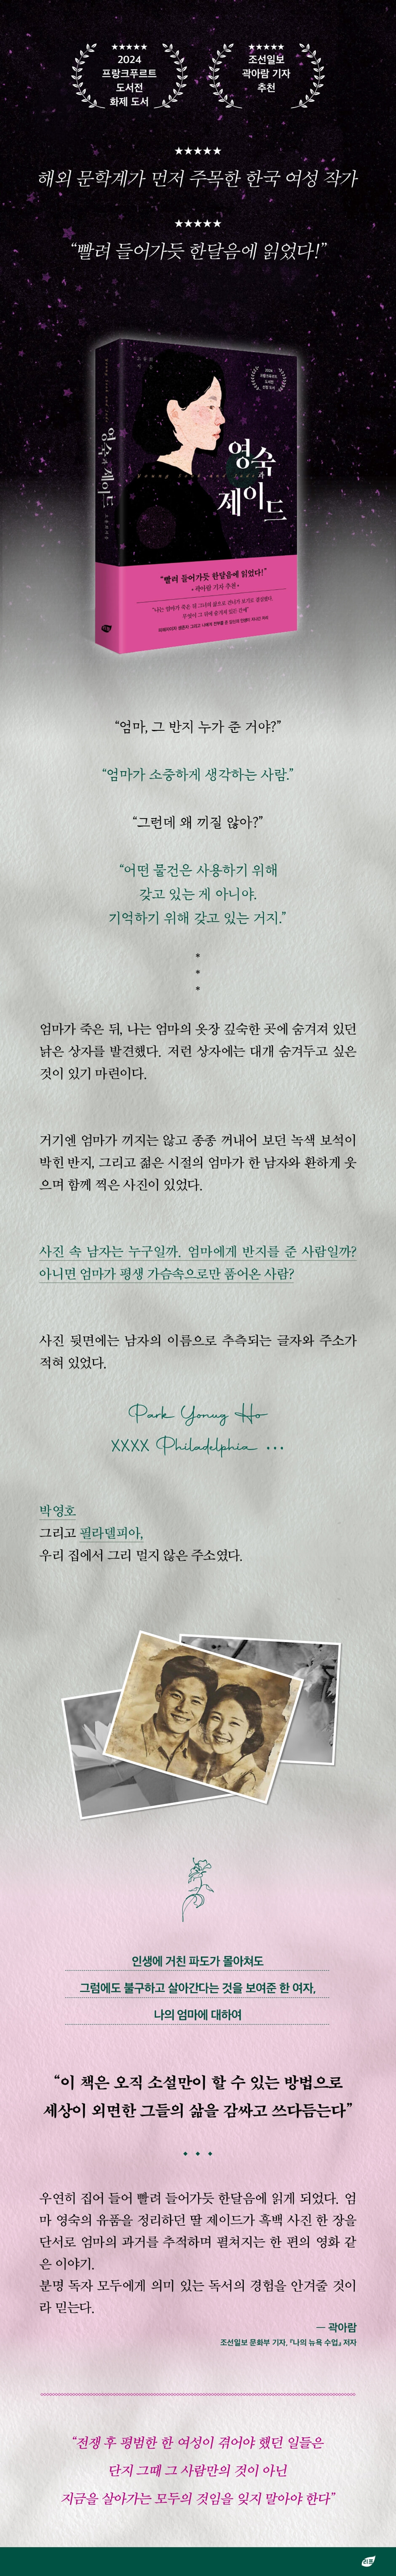 ★★★★★
2024
프랑크푸르트
도서전
화제 도서
★★★★★
조선일보
곽아람 기자
추천
★★★★★
해외 문학계가 먼저 주목한 한국 여성 작가
★★★★★
“빨려 들어가듯 한달음에 읽었다!”
영숙과 제이드
영숙
과
제이드
“빨려 들어가듯 한달음에 읽었다!”
• 곽아람 기자 추천 •
“엄마, 그 반지 누가 준 거야?”
“엄마가 소중하게 생각하는 사람.”
“그런데 왜 끼질 않아?”
“어떤 물건은 사용하기 위해
갖고 있는 게 아니야.
기억하기 위해 갖고 있는 거지.”
*
*
*
엄마가 죽은 뒤, 나는 엄마의 옷장 깊숙한 곳에 숨겨져 있던
낡은 상자를 발견했다. 저런 상자에는 대개 숨겨두고 싶은
것이 있기 마련이다.
거기엔 엄마가 끼지는 않고 종종 꺼내어 보던 녹색 보석이
박힌 반지, 그리고 젊은 시절의 엄마가 한 남자와 환하게 웃
으며 함께 찍은 사진이 있었다.
사진 속 남자는 누구일까. 엄마에게 반지를 준 사람일까?
아니면 엄마가 평생 가슴속으로만 품어온 사람?
사진 뒷면에는 남자의 이름으로 추측되는 글자와 주소가
적혀 있었다.
Park Yonug Ho
XXXX Philadelphia ...
박영호
그리고 필라델피아,
우리 집에서 그리 멀지 않은 주소였다.
인생에 거친 파도가 몰아쳐도
그럼에도 불구하고 살아간다는 것을 보여준 한 여자,
나의 엄마에 대하여
“이 책은 오직 소설만이 할 수 있는 방법으로
세상이 외면한 그들의 삶을 감싸고 쓰다듬는다”
우연히 집어 들어 빨려 들어가듯 한달음에 읽게 되었다. 엄
마 영숙의 유품을 정리하던 딸 제이드가 흑백 사진 한 장을
단서로 엄마의 과거를 추적하며 펼쳐지는 한 편의 영화 같
은 이야기.
분명 독자 모두에게 의미 있는 독서의 경험을 안겨줄 것이
라 믿는다.
— 곽아람
조선일보 문화부 기자, 『나의 뉴욕 수업』 저자
“전쟁 후 평범한 한 여성이 겪어야 했던 일들은
단지 그때 그 사람만의 것이 아닌
지금을 살아가는 모두의 것임을 잊지 말아야 한다”